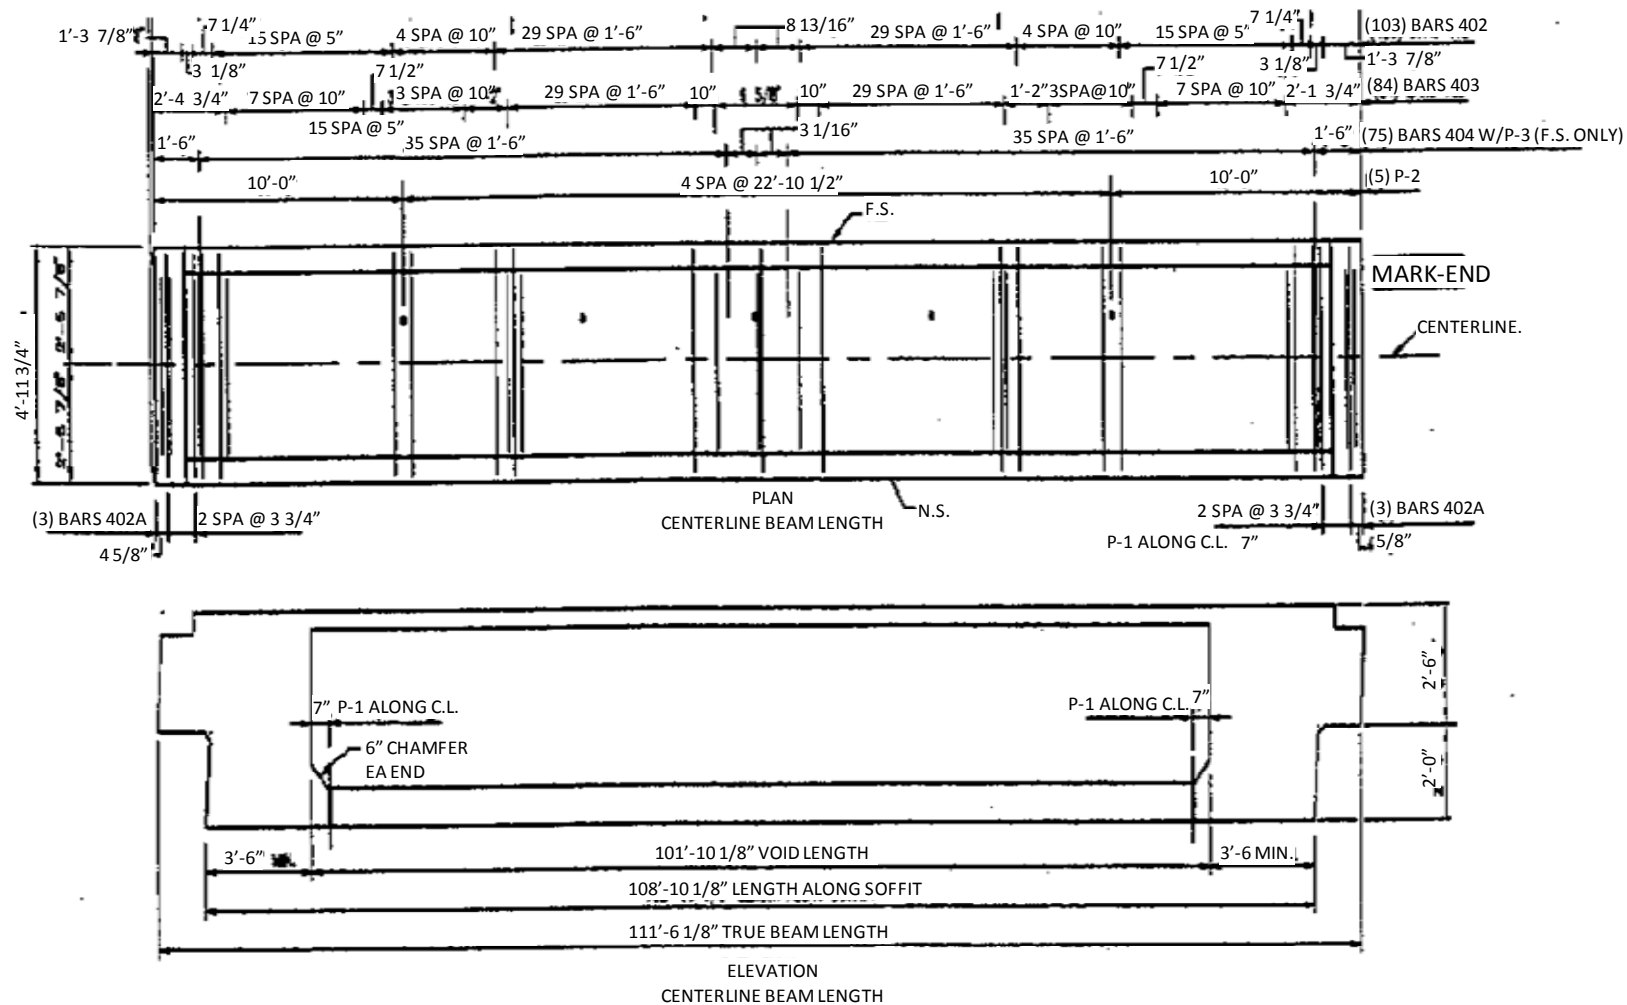 7 1/4” 8 13/16” 7 1/4”
1’-3 7/8” 15 SPA @ 5” 4 SPA @ 10” 29 SPA @ 1’-6” 29 SPA @ 1’-6” 4 SPA @ 10” 15 SPA @ 5” (103) BARS 402
3 1/8” 7 1/2” 7 1/2” 3 1/8” 1’-3 7/8”
2’-4 3/4” 7 SPA @ 10” 3 SPA @ 10” 29 SPA @ 1’-6” 10” 5/8" 10” 29 SPA @ 1’-6” 1’-2” 3SPA@10” 7 SPA @ 10” 2’-1 3/4” (84) BARS 403
15 SPA @ 5” 3 1/16”
1’-6” 35 SPA @ 1’-6” 35 SPA @ 1’-6” 1’-6” (75) BARS 404 W/P-3 (F.S. ONLY)
10’-0” 4 SPA @ 22’-10 1/2” 10’-0” (5) P-2
F.S.
MARK-END
4’-11 3/4”
7/8"
7/8"
CENTERLINE.
PLAN
CENTERLINE BEAM LENGTH
N.S.
(3) BARS 402A 2 SPA @ 3 3/4” 2 SPA @ 3 3/4” (3) BARS 402A
4 5/8” P-1 ALONG C.L. 7” 5/8”
7” P-1 ALONG C.L. P-1 ALONG C.L. 7”
6” CHAMFER
EA END
2’-6”
2’-0”
3’-6” 101’-10 1/8” VOID LENGTH 3’-6 MIN.
108’-10 1/8” LENGTH ALONG SOFFIT
111’-6 1/8” TRUE BEAM LENGTH
ELEVATION
CENTERLINE BEAM LENGTH